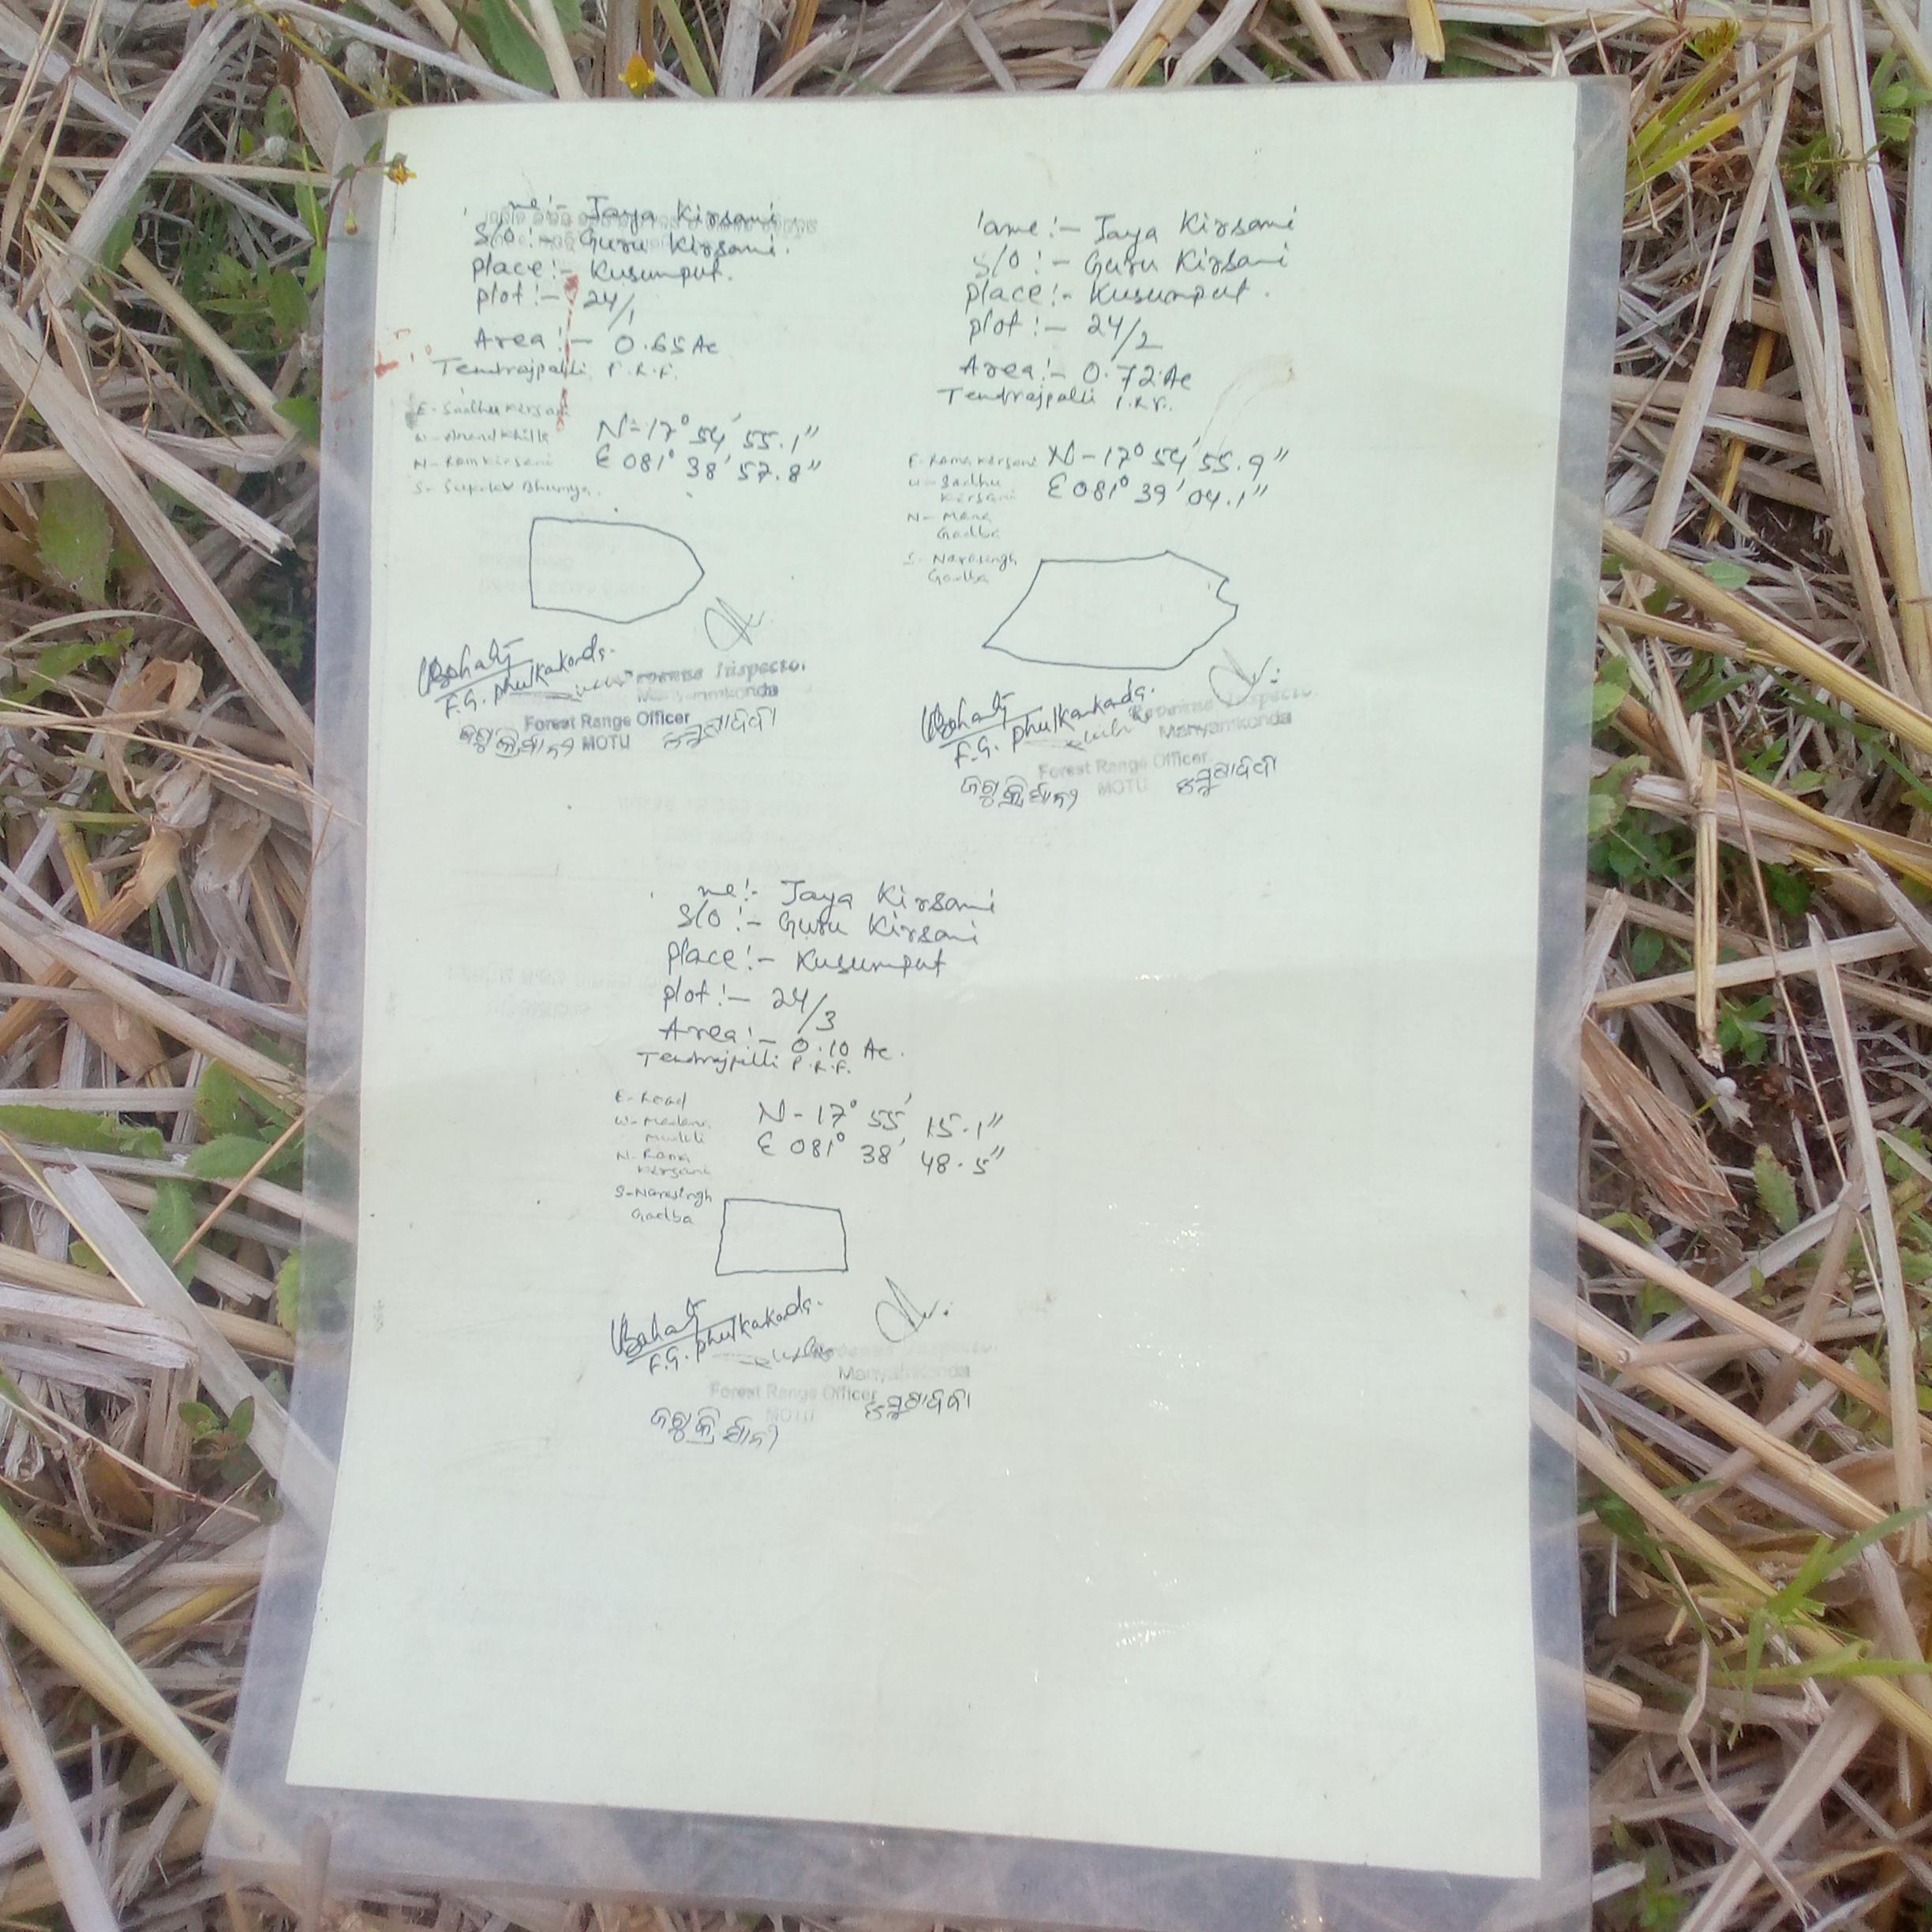 me:- Jaya Kirsani
S/O:- Guru Kirsani.
place:- Kusumput.
plot:- 24/1
Area:- 0.65 Ac
Tendrajpalli P.R.F.
E- Sadhu Kirsani
W- Anand Khilla
N- Ram Kirsani
S- Sukdev Bhumya.
N-17° 54' 55.1"
E 081° 38' 57.8"
F.G. Phulkakonda.
Revenue Inspector.
Manyamkonda
Forest Range Officer
MOTU
ame:- Jaya Kirsani
S/O:- Guru Kirsani
place:- Kusumput.
plot:- 24/2
Area:- 0.72 Ac
Tendrajpalli P.R.F.
E- Rama Kirsani
W- Sadhu
Kirsani
N- Mana
Gadba
S- Narasingh
Gadba
N-17° 54' 55.9"
E 081° 39' 04.1"
F.G. Phulkakonda.
Revenue Inspector.
Manyamkonda
Forest Range Officer
MOTU
me:- Jaya Kirsani
S/O:- Guru Kirsani
place:- Kusumput
plot:- 24/3
Area:- 0.10 Ac.
Tendrajpalli P.R.F.
E- Road
W- Madana
N- Rama
Kirsani
S- Narasingh
Gadba
N-17° 55' 15.1"
E 081° 38' 48.5"
F.G. Phulkakonda.
Revenue Inspector.
Manyamkonda
Forest Range Officer
MOTU